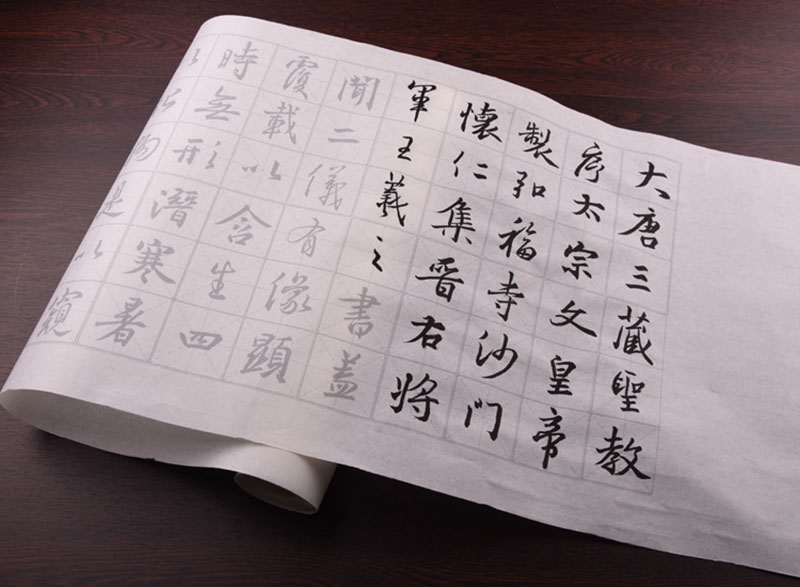 大唐三藏聖教
序太宗文皇帝
製弘福寺沙門
懷仁集晉右將
軍王羲之書蓋
聞二儀有像顯
覆載以含生四
時無形潛寒暑
以化物是以窺